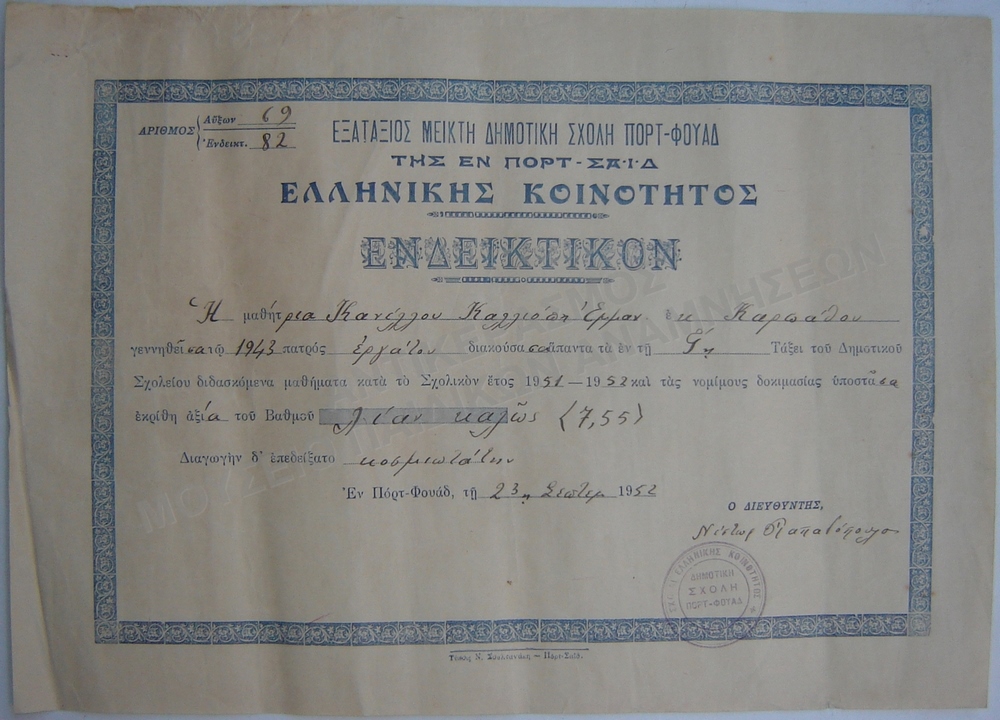 ΑΡΙΘΜΟΣ Αὔξων 69
Ἐνδεικτ. 82
ΕΞΑΤΑΞΙΟΣ ΜΕΙΚΤΗ ΔΗΜΟΤΙΚΗ ΣΧΟΛΗ ΠΟΡΤ-ΦΟΥΑΔ
ΤΗΣ ΕΝ ΠΟΡΤ-ΣΑ·Ι·Δ
ΕΛΛΗΝΙΚΗΣ ΚΟΙΝΟΤΗΤΟΣ
ΕΝΔΕΙΚΤΙΚΟΝ
Ἡ μαθήτρια Κανέλλου Καλλιόπη Ἐμμαν. ἐκ Καρπάθου
γεννηθεῖσα τῷ 1943 πατρός ἐργάτου διακούσασα ἅπαντα τὰ ἐν τῇ Γ'ῃ Τάξει τοῦ Δημοτικοῦ
Σχολείου διδασκόμενα μαθήματα κατὰ τὸ Σχολικὸν ἔτος 1951-1952 καὶ τὰς νομίμους δοκιμασίας ὑποστᾶσα
ἐκρίθη ἀξία τοῦ Βαθμοῦ λίαν καλῶς (7,55)
Διαγωγὴν δ' ἐπεδείξατο κοσμιωτάτην
Ἐν Πόρτ-Φουάδ, τῇ 23ῃ Σεπτεμ 1952
Ο ΔΙΕΥΘΥΝΤΗΣ,
Νέστωρ Παπαδόπουλος
ΕΛΛΗΝΙΚΗΣ ΚΟΙΝΟΤΗΤΟΣ
ΔΗΜΟΤΙΚΗ
ΣΧΟΛΗ
ΠΟΡΤ-ΦΟΥΑΔ
Τύποις Ν. — Πόρτ-Σαΐδ.